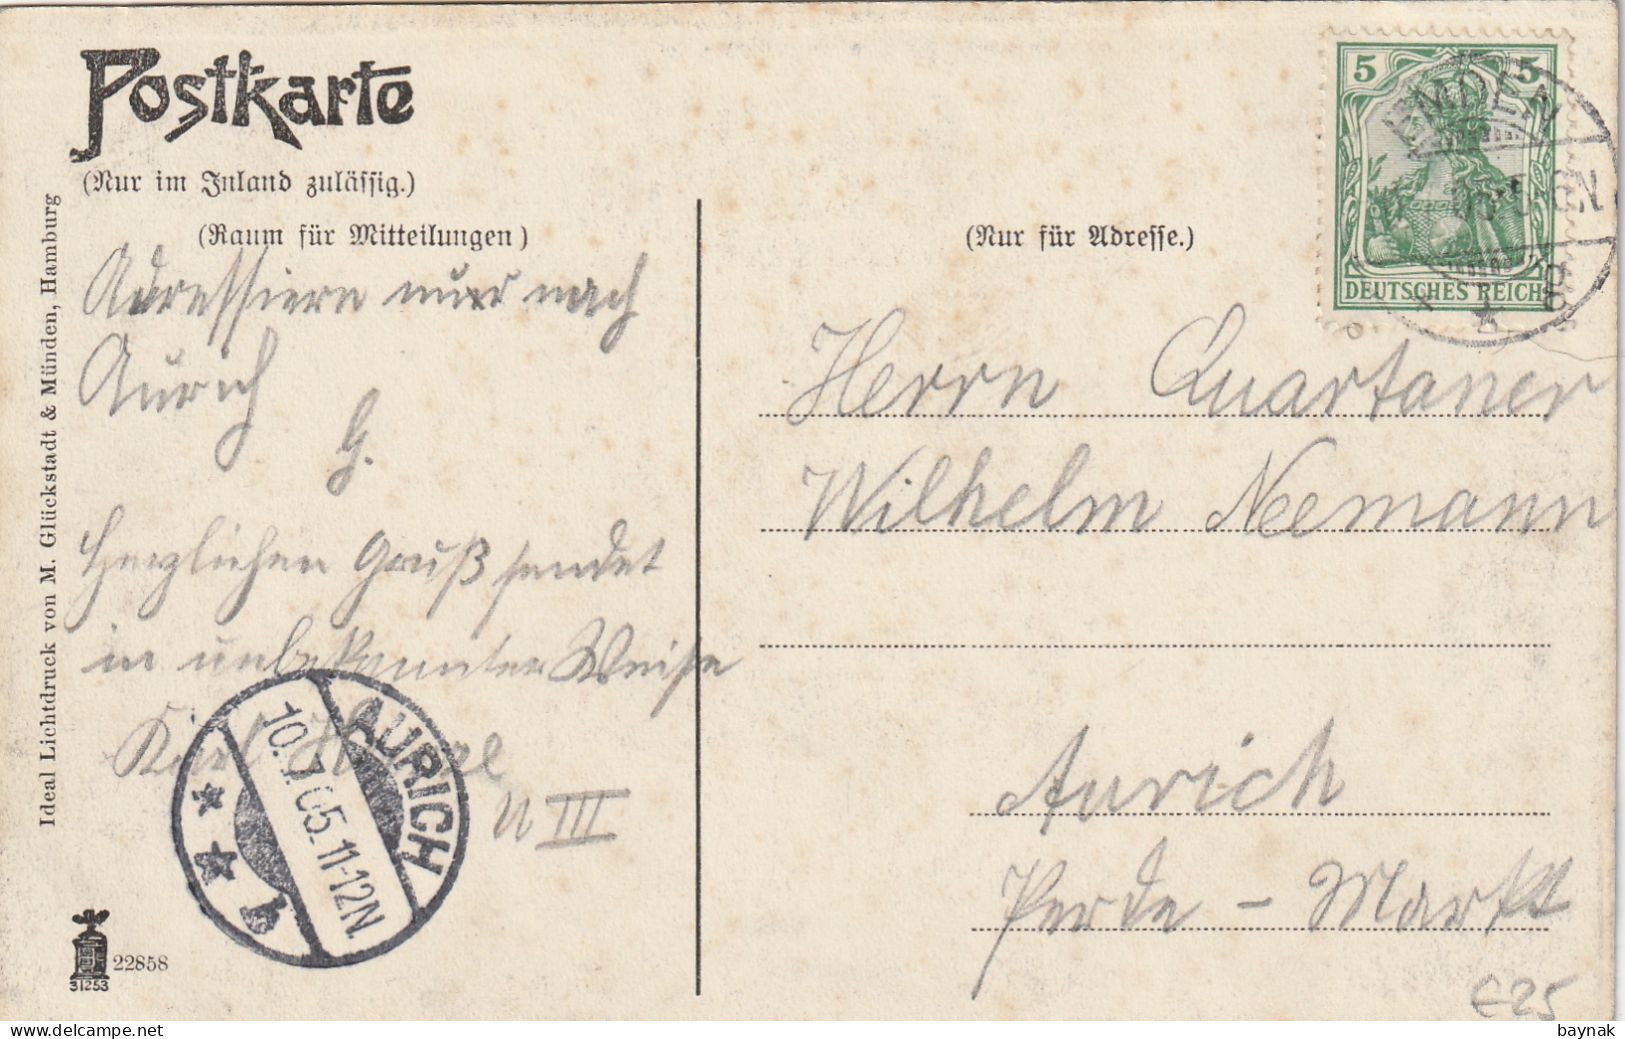 Postkarte
(Nur im Inland zulässig.)
(Raum für Mitteilungen)
Adressiere nur nach
Aurich
G.
Herzlichen Gruß sendet
in unbekannter Weise
Karl
U III
AURICH
10.7.05. 11-12N.
* * b
Ideal Lichtdruck von M. Glückstadt & Münden, Hamburg
22858
31253
(Nur für Adresse.)
5 5
DEUTSCHES REICH
EMDEN
Herrn Quartaner
Wilhelm Neemann
Aurich
Perde-Markt
€25
baynak